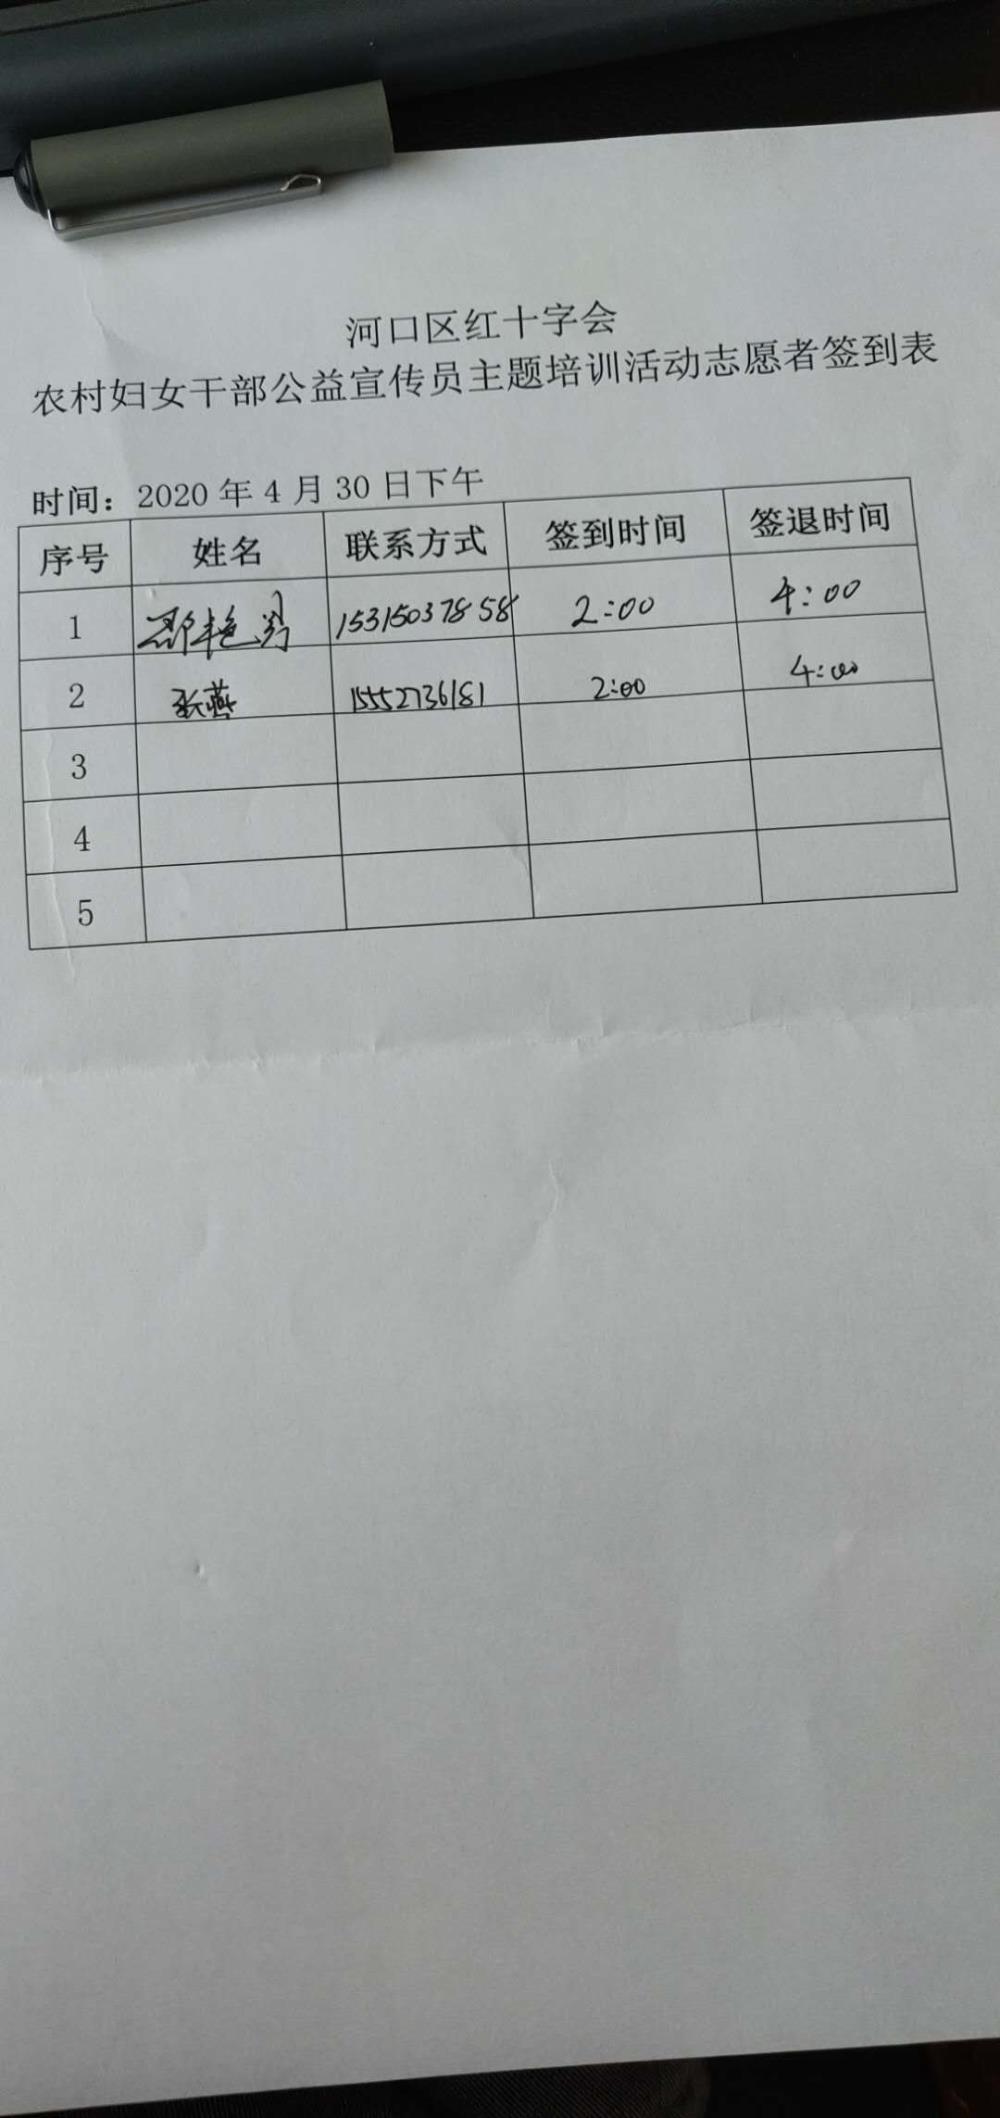 河口区红十字会
农村妇女干部公益宣传员主题培训活动志愿者签到表
时间：2020 年 4 月 30 日下午
序号 姓名 联系方式 签到时间 签退时间
1 15315037858 2:00 4:00
2 张燕 15552736181 2:00 4:00
3
4
5